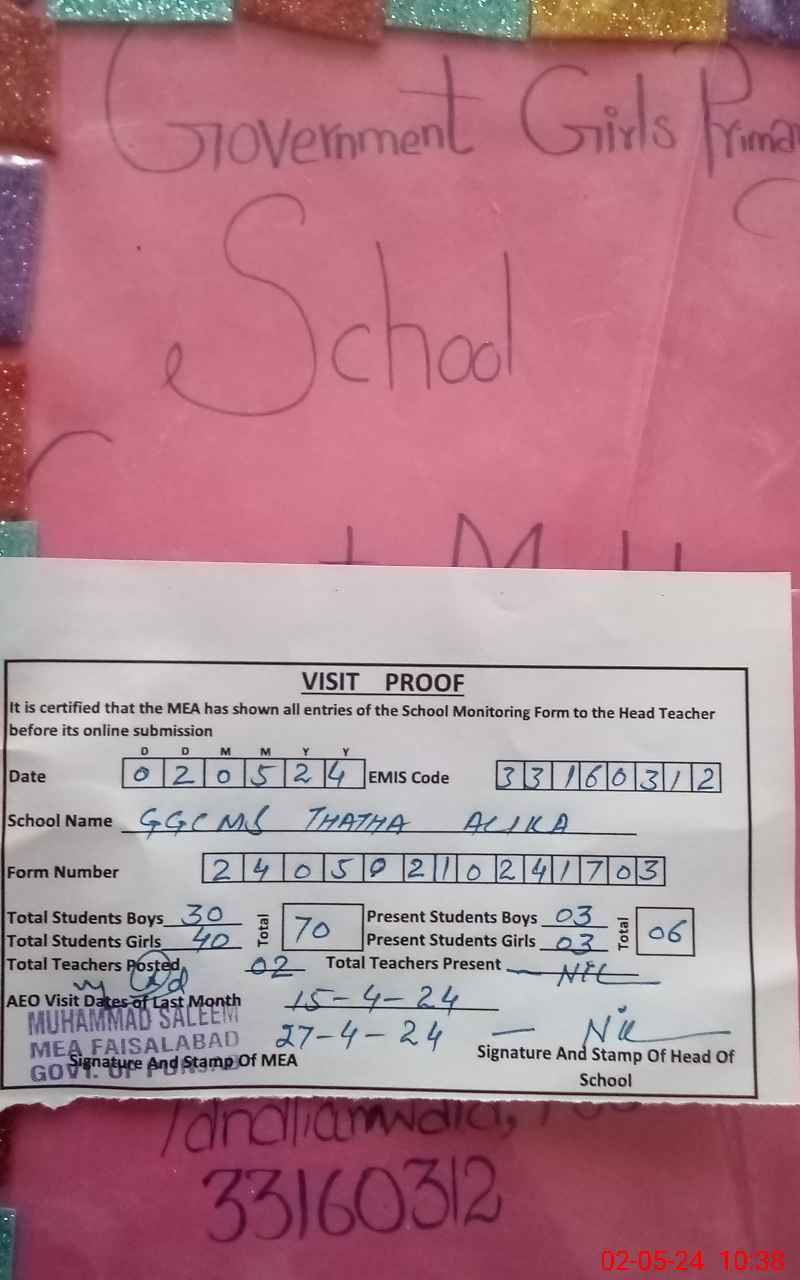 Government Girls Prima
School
VISIT PROOF
It is certified that the MEA has shown all entries of the School Monitoring Form to the Head Teacher
before its online submission
D D M M Y Y
Date 0 2 0 5 2 4 EMIS Code 3 3 1 6 0 3 1 2
School Name GGCMS THATHA ALIKA
Form Number 2 4 0 5 0 2 1 0 2 4 1 7 0 3
Total Students Boys 30 Total 70 Present Students Boys 03 Total 06
Total Students Girls 40 Present Students Girls 03
Total Teachers Posted 02 Total Teachers Present NIL
AEO Visit Dates of Last Month 15-4-24
MUHAMMAD SALEEM
27-4-24 Nil
MEA FAISALABAD
GOVT. OF PUNJAB
Signature And Stamp Of MEA Signature And Stamp Of Head Of
School
33160312
02-05-24 10:38